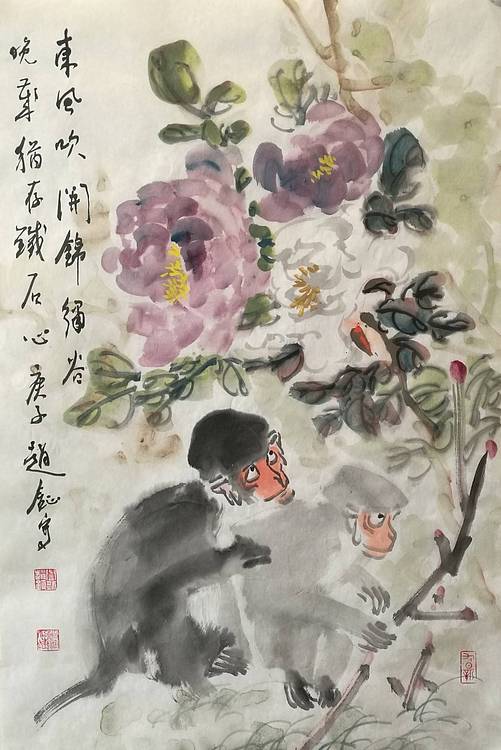 東風吹開錦繡谷
晚 猶存鐵石心 庚子 趙 寫